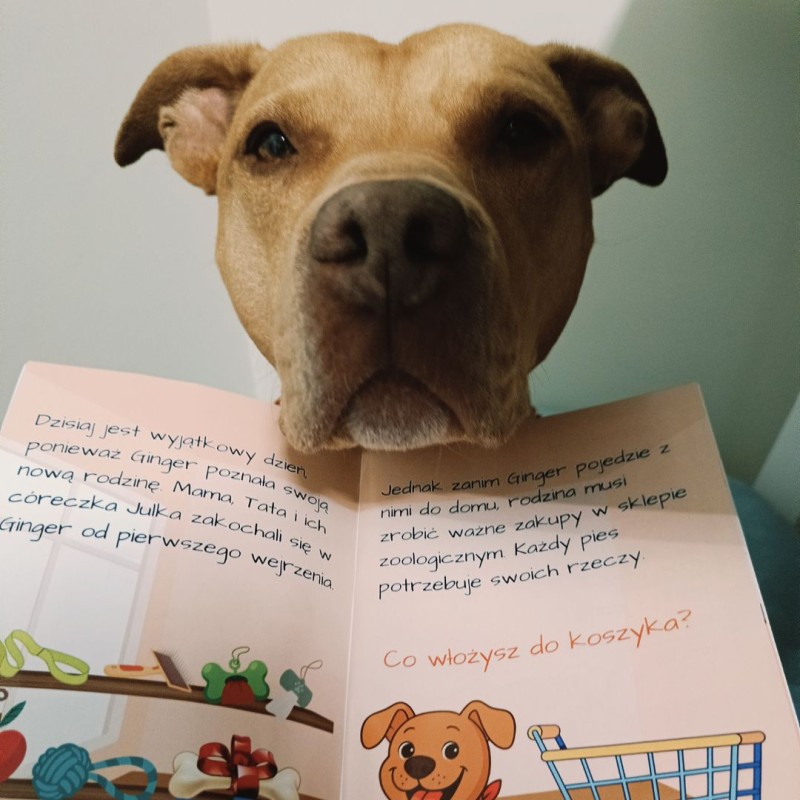 Dzisiaj jest wyjątkowy dzień,
ponieważ Ginger poznała swoją
nową rodzinę. Mama, Tata i ich
córeczka Julka zakochali się w
Ginger od pierwszego wejrzenia.
Jednak zanim Ginger pojedzie z
nimi do domu, rodzina musi
zrobić ważne zakupy w sklepie
zoologicznym. Każdy pies
potrzebuje swoich rzeczy.
Co włożysz do koszyka?